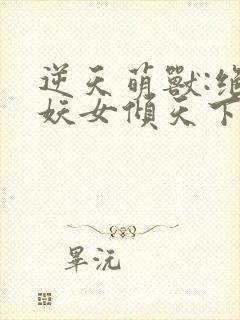 逆天萌獸:絕
妖女傾天下
畢沅